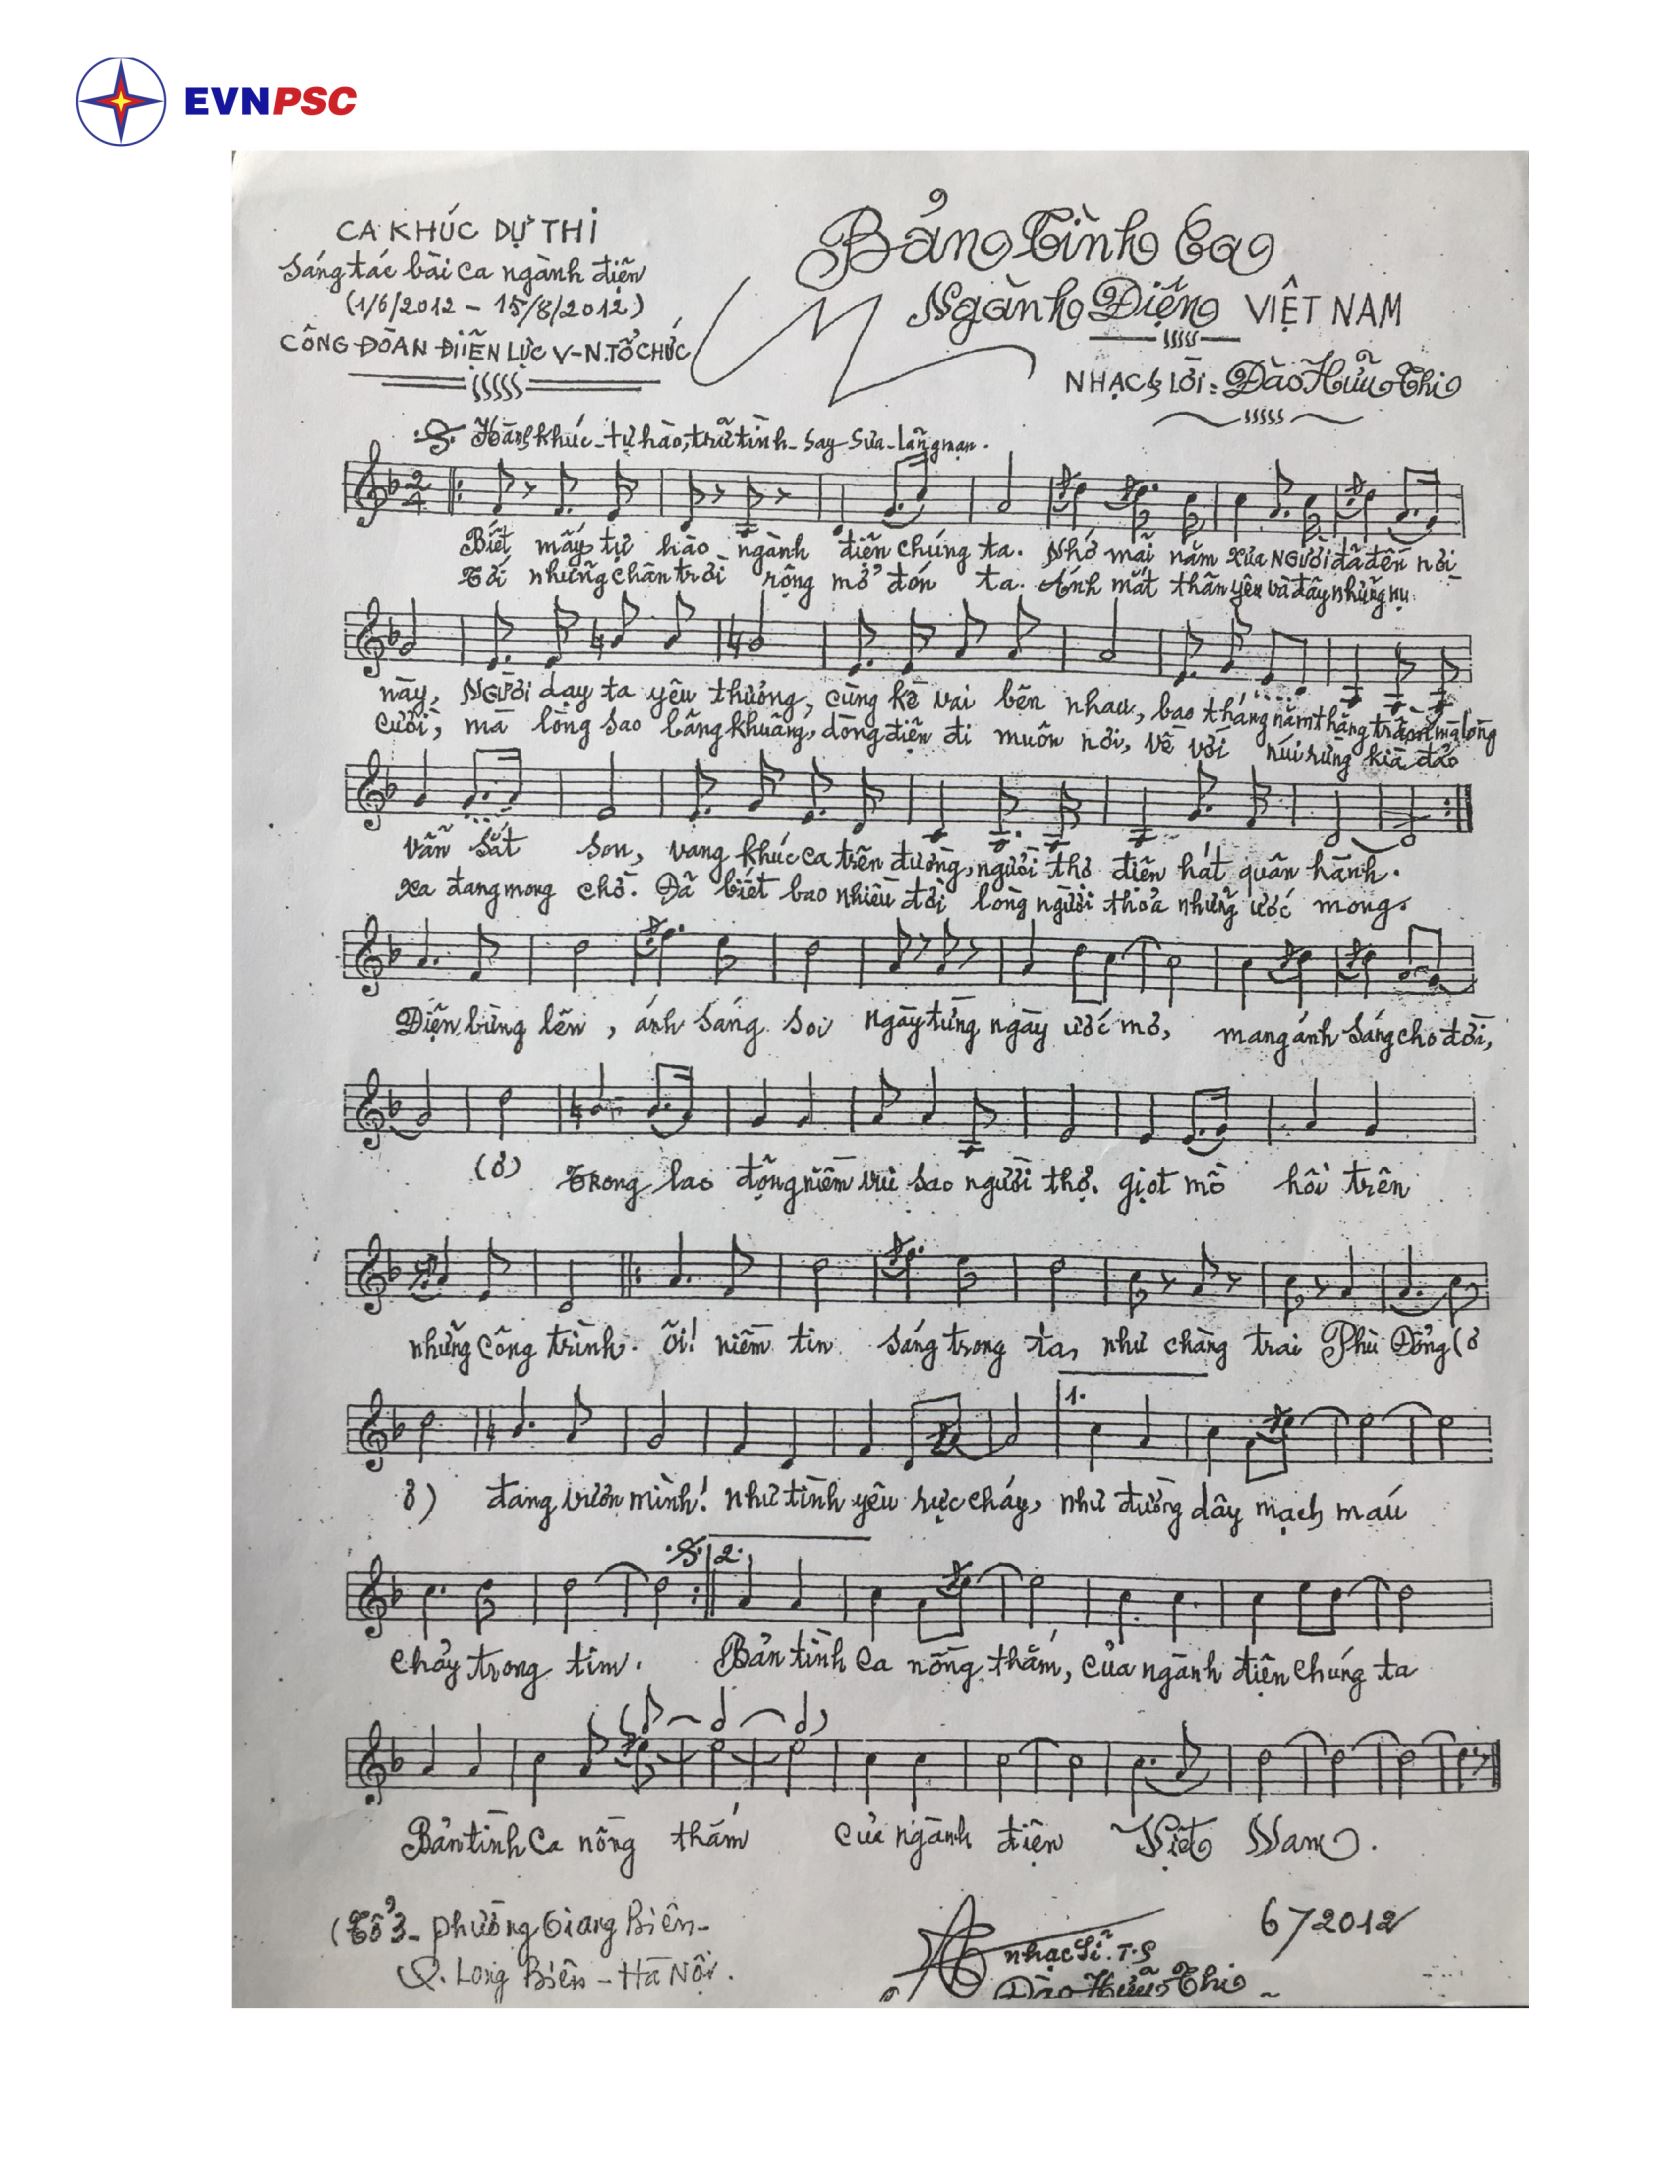 EVNPSC
CA KHÚC DỰ THI
Sáng tác bài ca ngành điện
(1/6/2012 - 15/8/2012)
CÔNG ĐOÀN ĐIIỆN LỰC V-N.TỔ CHỨC
Bản Tình Ca
Ngành Điện VIỆT NAM
NHẠC & LỜI: Đào Hữu Thi
Hành khúc - tự hào, trữ tình - say sưa - lãng mạn.
Biết mấy tự hào ngành điện chúng ta. Nhớ mãi năm xưa NGƯỜI đã đến nơi
Tới những chân trời rộng mở đón ta. Ánh mắt thân yêu và đây những nụ
này, NGƯỜI dạy ta yêu thương, cùng kề vai bên nhau, bao tháng năm thăng trầm mà lòng
cười, mà lòng sao bâng khuâng, dòng điện đi muôn nơi, về với núi rừng kia đảo
vẫn sắt son, vang khúc ca trên đường, người thợ điện hát quân hành.
xa đang mong chờ. Đã biết bao nhiêu đời lòng người thỏa những ước mong.
Điện bừng lên, ánh sáng soi ngày từng ngày ước mơ, mang ánh sáng cho đời,
(ơ) Trong lao động niềm vui sao người thợ. giọt mồ hôi trên
những công trình. Ôi! niềm tin sáng trong ta, như chàng trai Phù Đổng (ơ
ơ) đang vươn mình! như tình yêu rực cháy, như đường dây mạch máu
1.
chảy trong tim. Bản tình ca nồng thắm, của ngành điện chúng ta
2.
Bản tình ca nồng thắm của ngành điện Việt Nam.
(Tổ 3 - phường Giang Biên -
Q. Long Biên - Hà Nội.
6/2012
nhạc sĩ. T.S
Đào Hữu Thi